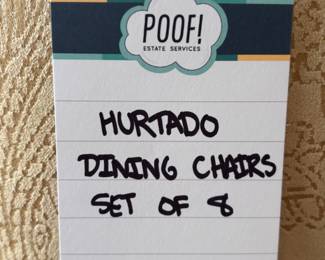 POOF!
ESTATE SERVICES
HURTADO
DINING CHAIRS
SET OF 8